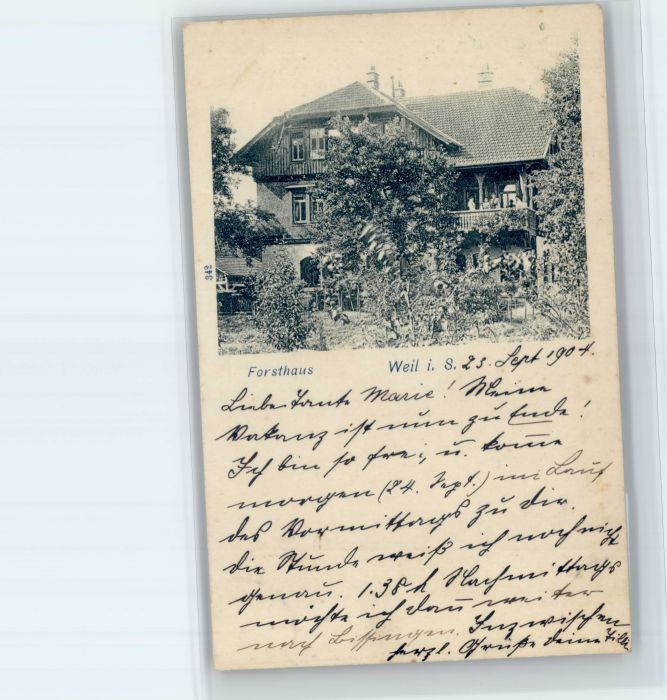 342
Forsthaus Weil i. S. 23. Sept 1904.
Liebe Tante Marie! Meine
Vakanz ist nun zu Ende!
Ich bin so frei, u. kome
morgen (24. Sept.) im Lauf
des Vormittags zu dir.
die Stunde weiß ich noch nicht
genau. 1.38 h Nachmittags
möchte ich dan weiter
nach Bissingen. Inzwischen
herzl. Grüße deine